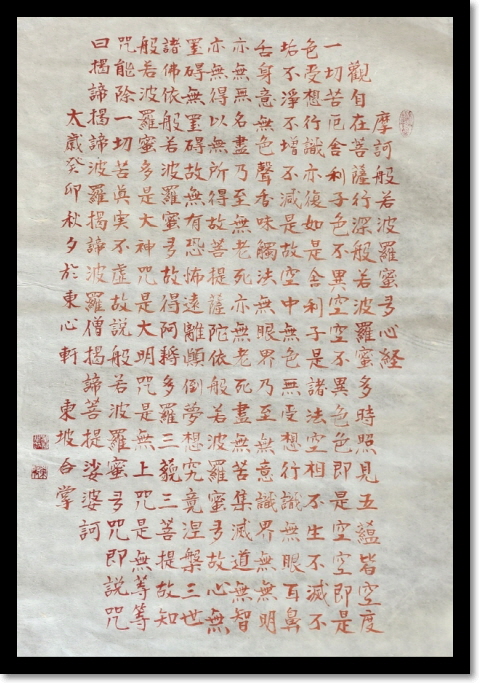 摩訶般若波羅蜜多心経
觀自在菩薩行深般若波羅蜜多時照見五蘊皆空度
一切苦厄舍利子色不異空空不異色色即是空空即是
色受想行識亦復如是舍利子是諸法空相不生不滅不
垢不淨不增不減是故空中無色無受想行識無眼耳鼻
舌身意無色聲香味觸法無眼界乃至無意識界無無明
亦無無名盡乃至無老死亦無老死盡無苦集滅道無智
亦無得以無所得故菩提薩陀依般若波羅蜜多故心無
罣碍無罣碍故無有恐怖遠離顛倒夢想究竟涅槃三世
諸佛依般若波羅蜜多故得阿耨多羅三藐三菩提故知
般若波羅蜜多是大神咒是大明咒是無上咒是無等等
咒能除一切苦眞実不虛故說般若波羅蜜多咒即說咒
曰揭諦揭諦波羅揭諦波羅僧揭諦菩提娑婆訶
大歲癸卯秋夕於東心軒 東坡合掌